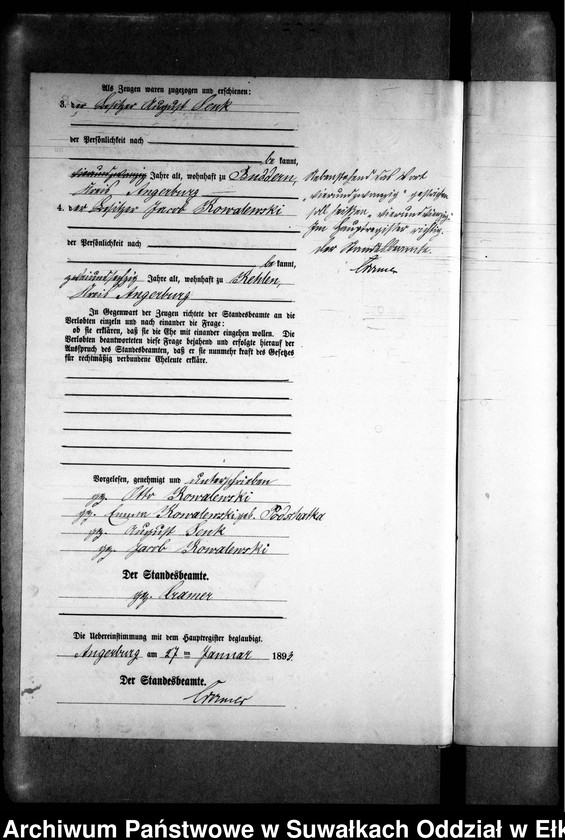 Als Zeugen waren zugezogen und erschienen:
3. der Besitzer August Senk
der Persönlichkeit nach
be kannt,
vierundzwanzig Jahre alt, wohnhaft zu
Kreis Angerburg
4. der Besitzer Jacob Kowalewski
der Persönlichkeit nach
be kannt,
Jahre alt, wohnhaft zu Kehlen,
Kreis Angerburg
In Gegenwart der Zeugen richtete der Standesbeamte an die
Verlobten einzeln und nach einander die Frage:
ob sie erklären, daß sie die Ehe mit einander eingehen wollen. Die
Verlobten beantworteten diese Frage bejahend und erfolgte hierauf der
Ausspruch des Standesbeamten, daß er sie nunmehr kraft des Gesetzes
für rechtmäßig verbundene Eheleute erkläre.
Vorgelesen, genehmigt und unterschrieben
gez. Otto Kowalewski
gez. Emma Kowalewski geb. Podschatka
gez. August Senk
gez. Jacob Kowalewski
Der Standesbeamte.
gez. Cramer
Die Uebereinstimmung mit dem Hauptregister beglaubigt.
Angerburg am 27 ten Januar 1893.
Der Standesbeamte.
Cramer
Nebenstehend das Wort
„vierundzwanzig" gestrichen
soll heißen „vierundvierzig".
Im Hauptregister richtig.
Der Standesbeamte.
Cramer
Archiwum Państwowe w Suwałkach Oddział w Ełk